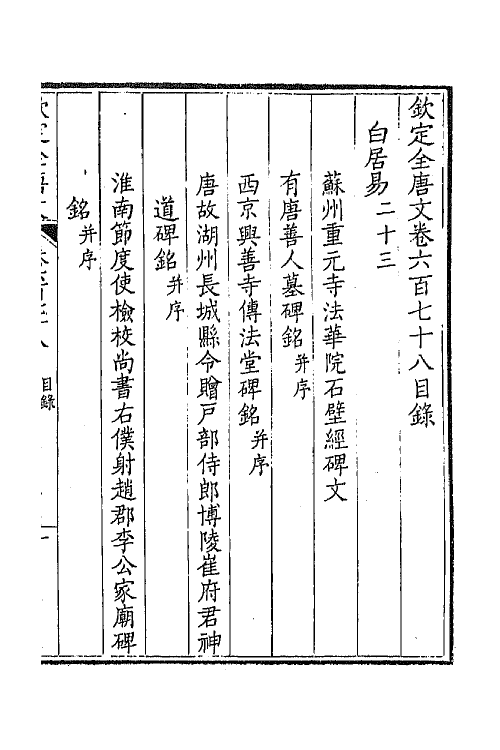 欽定全唐文卷六百七十八目錄
白居易二十三
蘇州重元寺法華院石壁經碑文
有唐善人墓碑銘并序
西京興善寺傳法堂碑銘并序
唐故湖州長城縣令贈戸部侍郎博陵崔府君神
道碑銘并序
淮南節度使檢校尚書右僕射趙郡李公家廟碑
銘并序
欽定全唐文
目錄
一